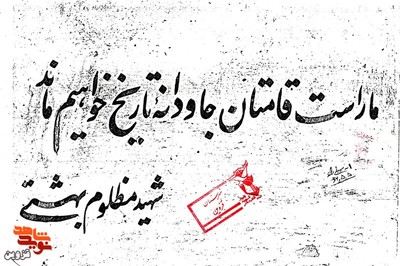 ما راست قامتان جاودانه تاریخ خواهیم ماند
شهید مظلوم بهشتی
نوید شاهد
قزوین